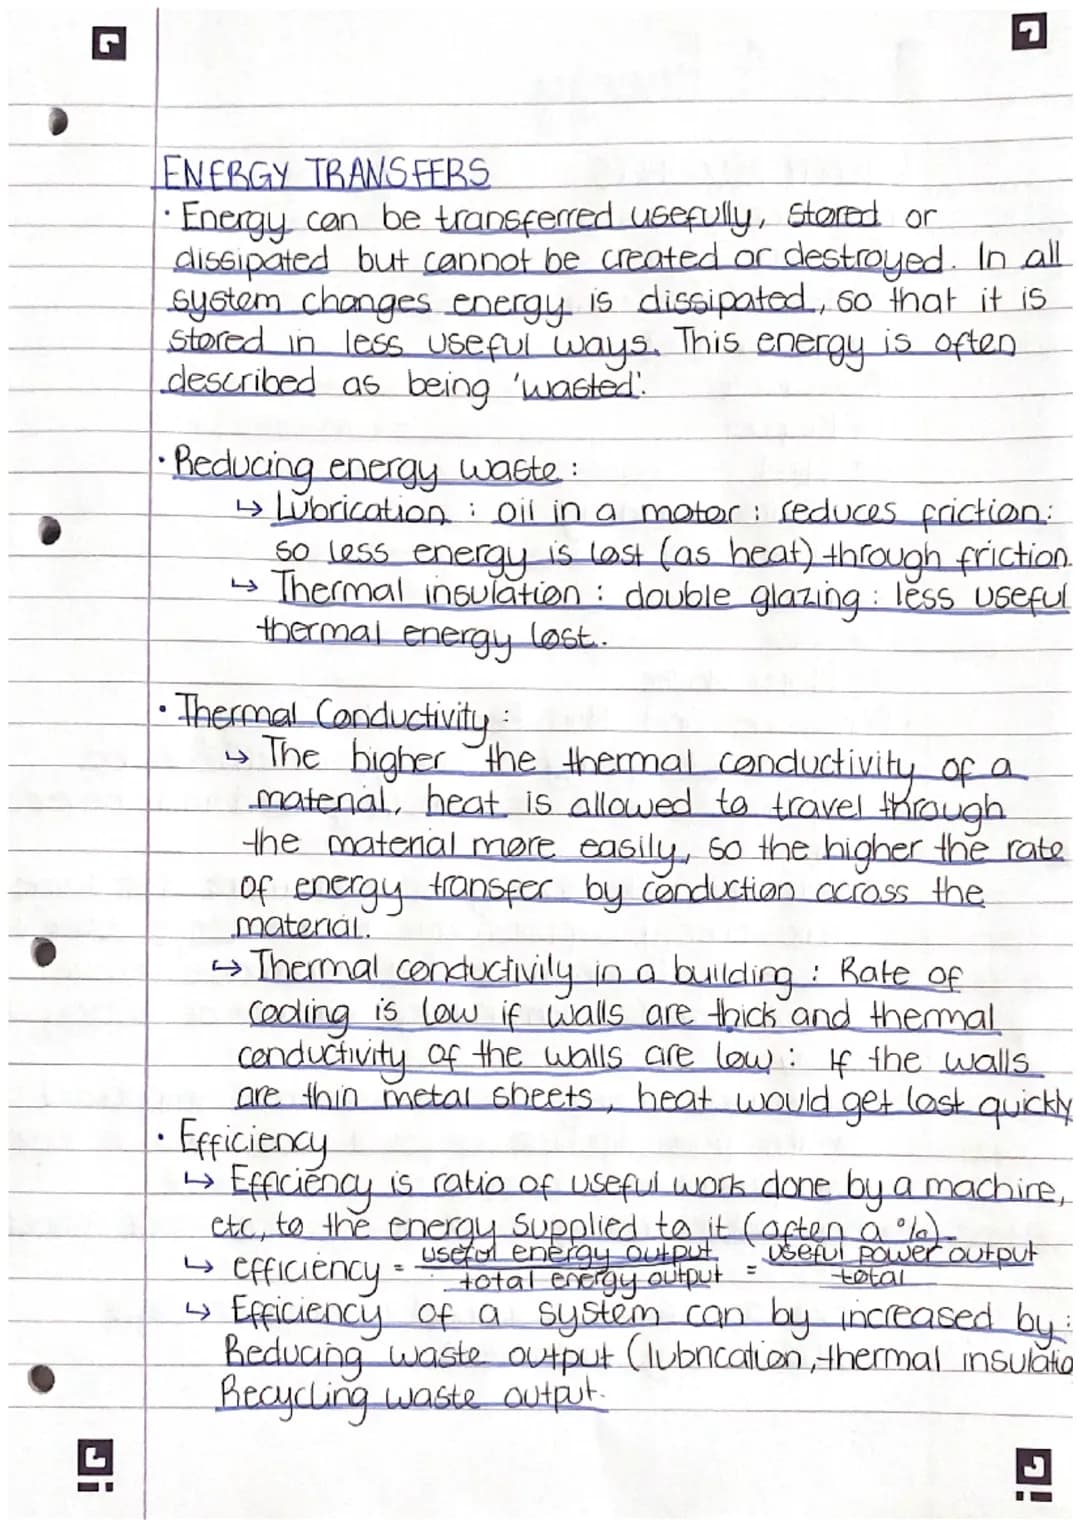 ENERGY TRANSFERS
· Energy can be transferred usefully, stored or
dissipated but cannot be created or destroyed. In all
system changes energy is dissipated, so that it is
stored in less useful ways. This energy is often
described as being 'wasted'.
· Reducing energy waste :
↳ Lubrication : oil in a motor : reduces friction:
so less energy is lost (as heat) through friction.
↳ Thermal insulation : double glazing : less useful
thermal energy lost.
· Thermal Conductivity :
↳ The higher the thermal conductivity of a
material, heat is allowed to travel through
the material more easily, so the higher the rate
of energy transfer by conduction across the
material.
↳ Thermal conductivily in a building : Rate of
cooling is low if walls are thick and thermal
conductivity of the walls are low : If the walls
are thin metal sheets, heat would get lost quickly
· Efficiency
↳ Efficiency is ratio of useful work done by a machine,
etc, to the energy supplied to it (often a %).
↳ efficiency = useful energy output / total energy output = useful power output / total
↳ Efficiency of a system can by increased by :
Reducing waste output (lubrication, thermal insulatio
Recycling waste output.